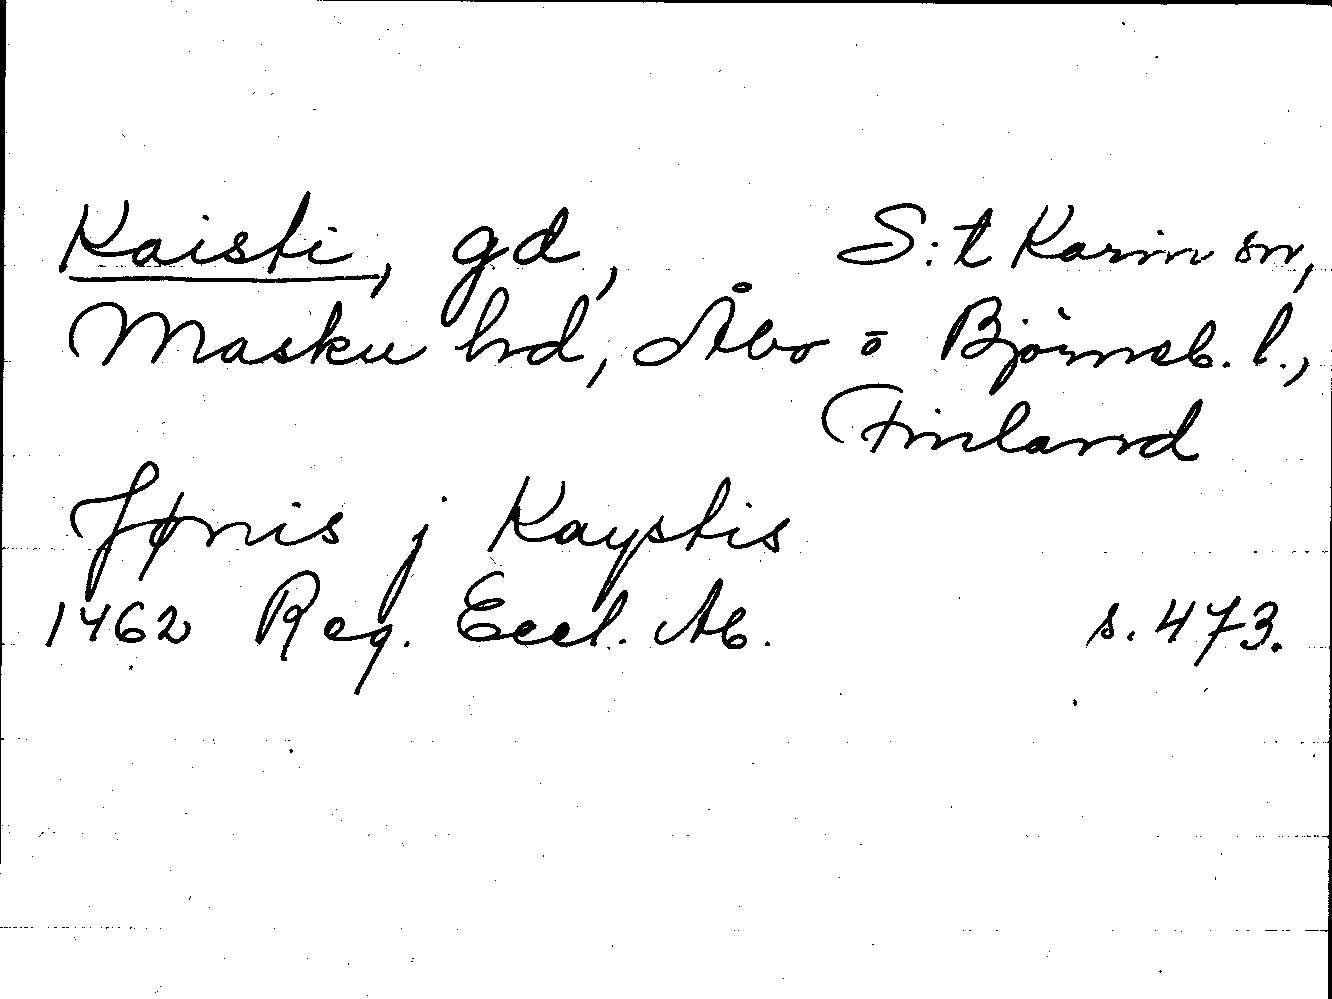 Kaisti, gd, S:t Karin sn,
Masku hd, Åbo o Björneb. l.,
Finland
Jønis j Kaystis
1462 Reg. Eccl. Ab. s. 473.